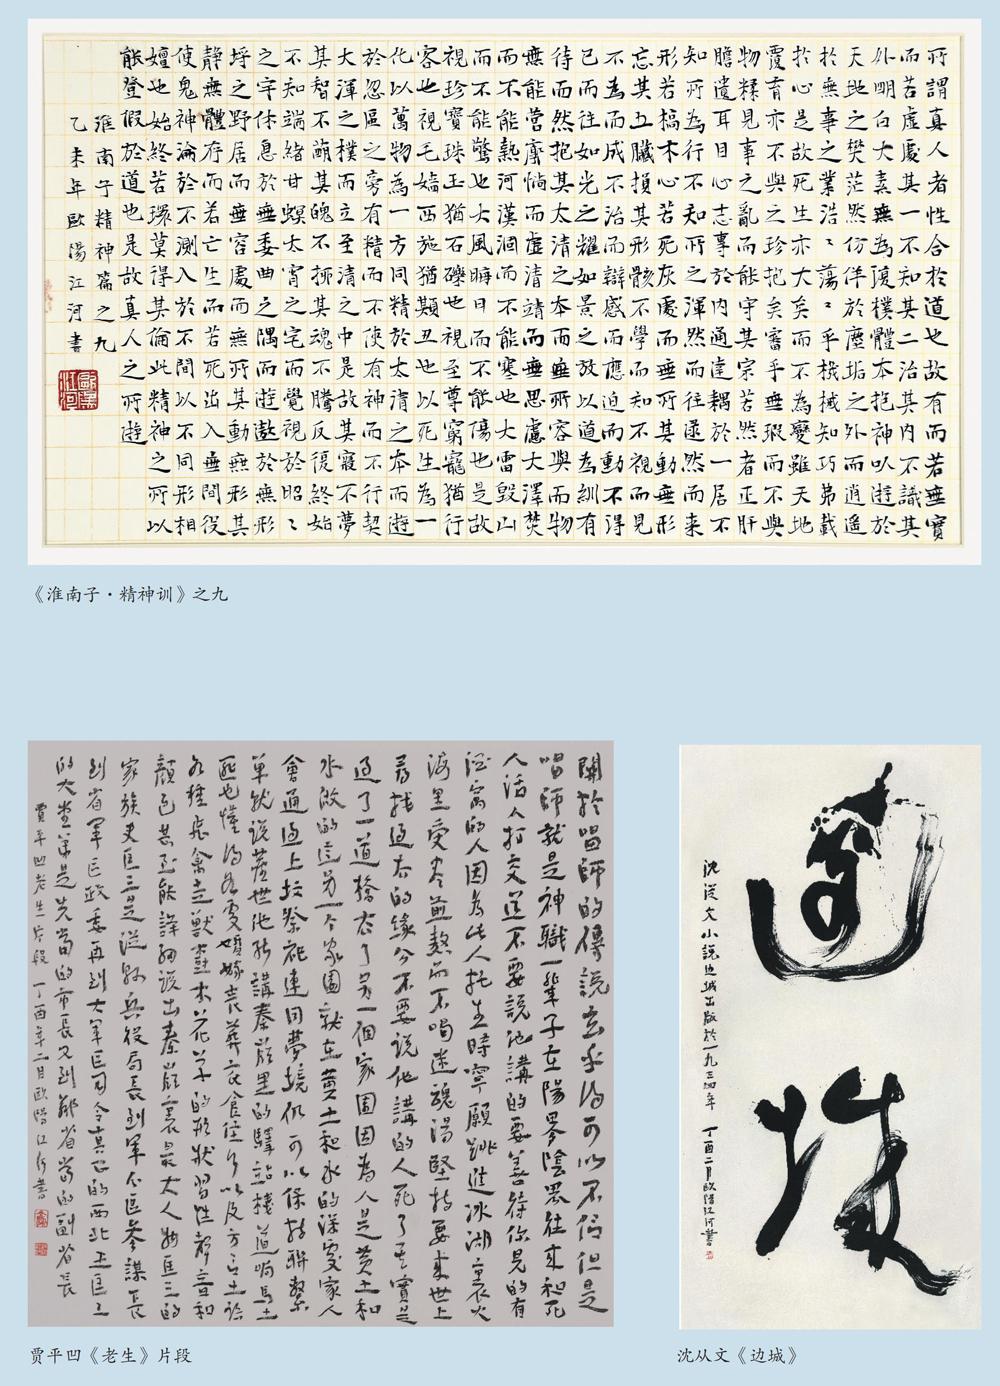 所謂真人者性合於道也故有而若無實
而若虛處其一不知其二治其內不識其
外明白太素無為復樸體本抱神以遊於
天地之樊茫然仿佯於塵垢之外而逍遙
於無事之業浩〻蕩〻乎機械知巧弗載
於心是故死生亦大矣而不為變雖天地
覆育亦不與之珍抱矣審乎無瑕而不與
物糅見事之亂而能守其宗若然者正肝
膽遺耳目心志專於內通達耦於一居不
知所為行不知所之渾然而往逯然而來
形若槁木心若死灰處而無所其動無形
忘其五臟損其形骸不學而知不視而見
不為而成不治而辯感而應迫而動不得
已而往如光之耀如景之放以道為紃有
待而然抱其太清之本而無所容與而物
無能營廓惝而虛清靖而無思慮大澤焚
而不能熱河漢涸而不能寒也大雷毀山
而不能驚也大風晦日而不能傷也是故
視珍寶珠玉猶石礫也視至尊窮寵猶行
客也視毛嬙西施猶䫏丑也以死生為一
化以萬物為一方同精於太清之本而遊
於忽區之旁有精而不使有神而不行契
大渾之樸而立至清之中是故其寢不夢
其智不萌其魄不抑其魂不騰反復終始
不知端緒甘瞑太宵之宅而覺視於昭〻
之宇休息於無委曲之隅而遊遨於無形
埒之野居而無容處而無所其動無形其
靜無體存而若亡生而若死出入無間役
使鬼神淪於不測入於不間以不同形相
嬗也始終若環莫得其倫此精神之所以
能登假於道也是故真人之所遊
淮南子精神篇之九
乙未年歐陽江河書
《淮南子·精神训》之九
關於唱師的傳說玄乎得可以不信但是
唱師就是神職一輩子在陽界陰界往來和死
人活人打交道不要說他講的要善待你見的有
酒窩的人因為此人托生時寧願跳進冰湖裏火
海里受盡煎熬而不喝迷魂湯堅持要來世上
尋找過去的緣分不要說他講的人死了其實是
過了一道橋去了另一個家園因為人是黃土和
水做的這另一个家園就在黃土和水的深處家人
會通過上墳祭祀連同夢境仍可以保持聯繫
單就說塵世他能講秦嶺里的驛站棧道响馬土
匪也懂得各處婚嫁喪葬衣食住行以及方言土語
各種飛禽走獸樹木花草的形狀習性聲音和
顏色甚至能詳細說出秦嶺裏最大人物匡三的
家族史匡三是從縣兵役局長到軍分區參謀長
到省軍區政委再到大軍區司令真正的西北王匡三
的大堂弟是先當的市長又到鄰省當的副省長
賈平凹老生片段 丁酉年二月歐陽江河書
贾平凹《老生》片段
邊城
沈從文小說边城出版於一九三四年 丁酉二月歐陽江河書
沈从文《边城》